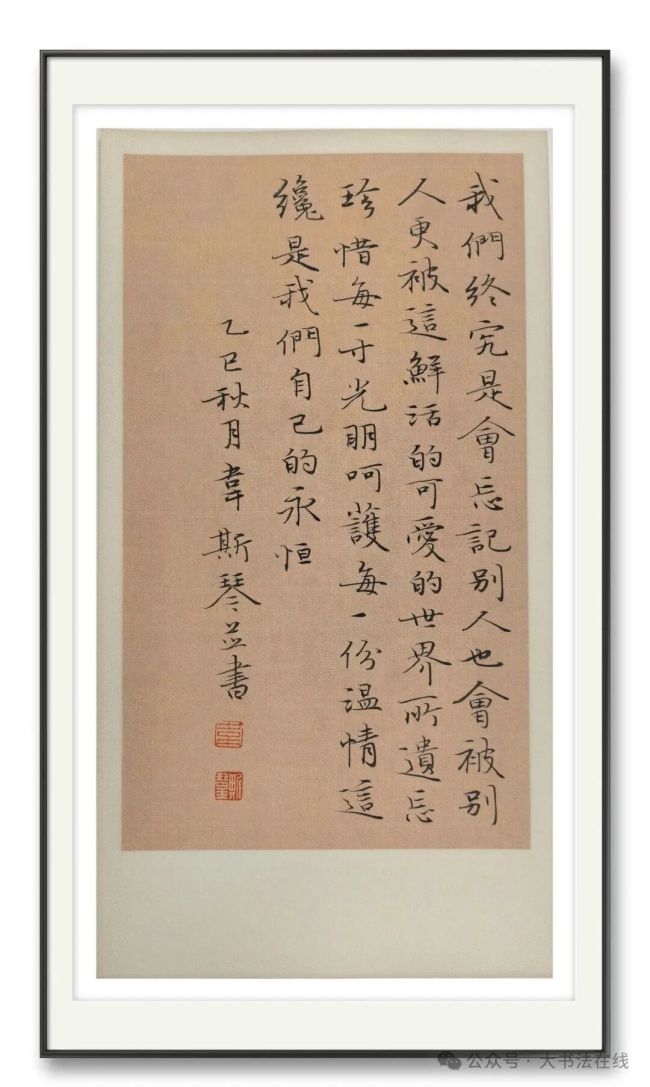 我們終究是會忘記別人也會被別
人更被這鮮活的可愛的世界所遺忘
珍惜每一寸光明呵護每一份温情這
纔是我們自己的永恒
乙巳秋月韋斯琴並書
韋
斯琴
公众号·大书法在线